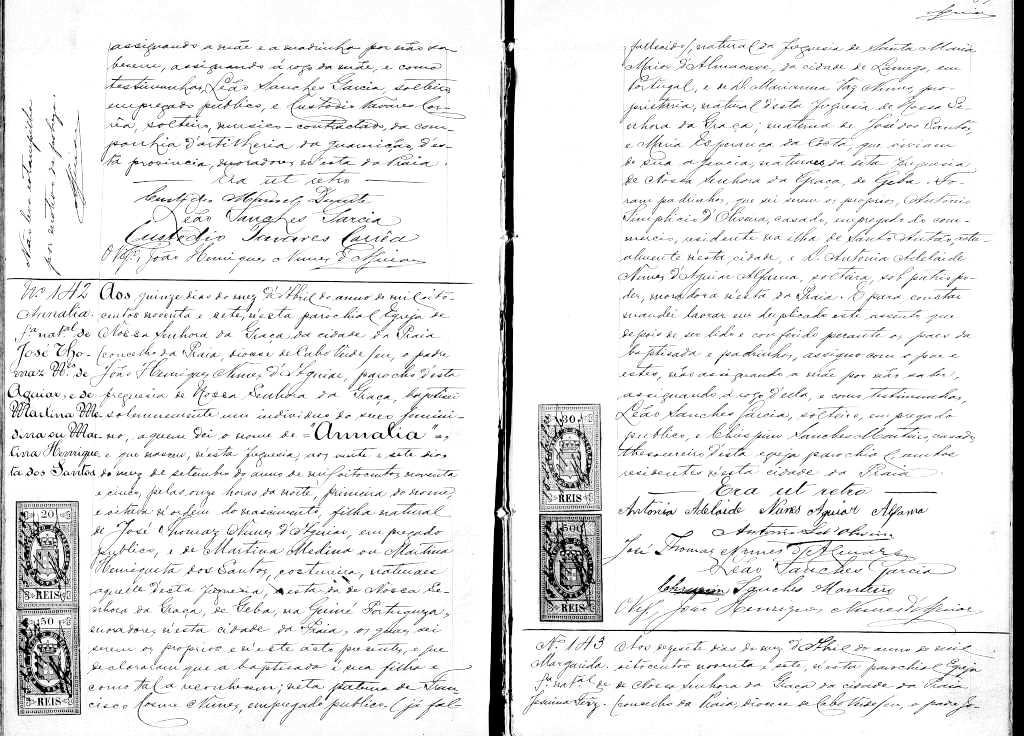 assignando a mãe e a madrinha por não sa-
berem, assignando á rogo da mãe, e como
testimunhas, Leão Sanches Garcia, solteiro
empregado publico, e Custodio Tavares Cor-
rêa, solteiro, musico-contractado, da com-
panhia d'artilheria da guarnição, des-
ta provincia, moradores n'esta da Praia.
Era ut retro
Custodio Manoel Duarte
Leão Sanches Garcia
Custodio Tavares Corrêa
O Vigº, João Henriques Nunes d'Aguiar
Não leva estampilha
por motivo de pobreza.
Aguiar
Nº 142
Annalia.
fª natal de
José Tho-
maz Nes de
Aguiar, e de
Martina Me-
dina ou Mar-
tina Henrique-
ta dos Santos
Aos quinze dias do mez d'Abril do anno de mil oito-
centos noventa e sete, n'esta parochial Egreja de
Nossa Senhora da Graça, da cidade da Praia
concelho da Praia, diocese de Cabo Verde, eu, o padre
João Henriques Nunes d'Aguiar, parocho d'esta
freguesia de Nossa Senhora da Graça, baptisei
solemnemente um individuo do sexo femini-
no, a quem dei o nome de "Annalia"
e que nasceu, n'esta freguesia, aos vinte e sete dias
do mez de setembro do anno de mil oitocentos noventa
e cinco, pelas onze horas da noite, primeira do nome,
e oitava n'ordem do nascimento, filha natural
de José Thomaz Nunes d'Aguiar, empregado
publico, e de Martina Medina ou Martina
Henriqueta dos Santos, costureira, naturaes
aquelle desta freguesia, e esta da de Nossa Se-
nhora da Graça, de Geba, na Guiné Portugueza,
moradores n'esta cidade da Praia, os quaes sei
serem os proprios e n'este acto presente, e que
declararam que a baptisada é sua filha e
como tal a reconhecem; neta paterna de Fran-
cisco Cosme Nunes, empregado publico (já fal-
20
REIS
50
REIS
Aguiar
fallecido), natural da freguesia de Santa Maria
Maior d'Almacave, da cidade de Lamego, em
Portugal, e de D. Marianna Vaz Nunes, pro-
prietaria, natural d'esta freguesia de Nossa Se-
nhora da Graça; materna de José dos Santos,
e Maria Esperança da Costa, que viviam
de sua agencia, naturaes da dita freguesia
de Nossa Senhora da Graça, de Geba. Fo-
ram padrinhos, que sei serem os proprios, Antonio
Simplicio d'Oliveira, casado, empregado do com-
mercio, residente na ilha de Santo Antão, actu-
almente n'esta cidade, e D. Antonia Adelaide
Nunes d'Aguiar Alfama, solteira, sob patrio po-
der, moradora n'esta da Praia. E para constar
mandei lavrar em duplicado este assento que
depois de ser lido e conferido perante os paes da
baptisada e padrinhos, assigno com o pae e
estes, não assignando a mãe por não saber,
assignando á rogo d'ella, e como testimunhas,
Leão Sanches Garcia, solteiro, empregado
publico, e Chrispim Sanches Monteiro, casado,
thesoureiro d'esta egreja parochial, ambos
residentes n'esta cidade da Praia.
Era ut retro
Antónia Adelaide Nunes Aguiar Alfama
Antonio Sº d'Oliveira
José Thomaz Nunes d'Aguiar
Leão Sanches Garcia
Chrispim Sanches Monteiro
O Vigº, João Henriques Nunes d'Aguiar
30
REIS
500
REIS
Nº 143
Margarida.
fª natal de
Aos dezesete dias do mez d'Abril do anno de mil
oitocentos noventa e sete, n'esta parochial Egreja
de Nossa Senhora da Graça da cidade da Praia
concelho da Praia, diocese de Cabo Verde, eu, o padre Jo-